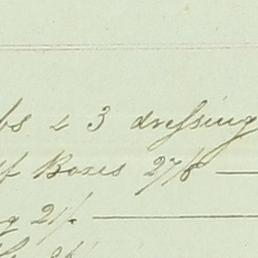 bs & 3 dressing
f Boxes 27/8
g 21/-